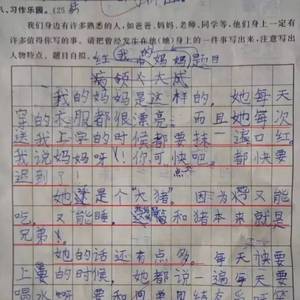 八、习作乐园。(25
我们身边有许多熟悉的人,如爸爸、妈妈、老师、同学等,他们身上一定有
许多值得你写的事。请把曾经发生在他(她)身上的一件事写出来,注意写出
人物特点。题目自拟。
我的妈妈
我的妈妈是这样的,她每天
穿的衣服都很漂亮,而且她每次
送我上学的时候都要抹一遍口红
我说妈妈呀!你可快吧。都快要
迟到了!
她还是个“大猪”。因为她又能
吃。又能睡。和猪本来就是
兄弟。
她的话还有点多。每天快要
上的时候,她都说一遍每天要
喝水呀